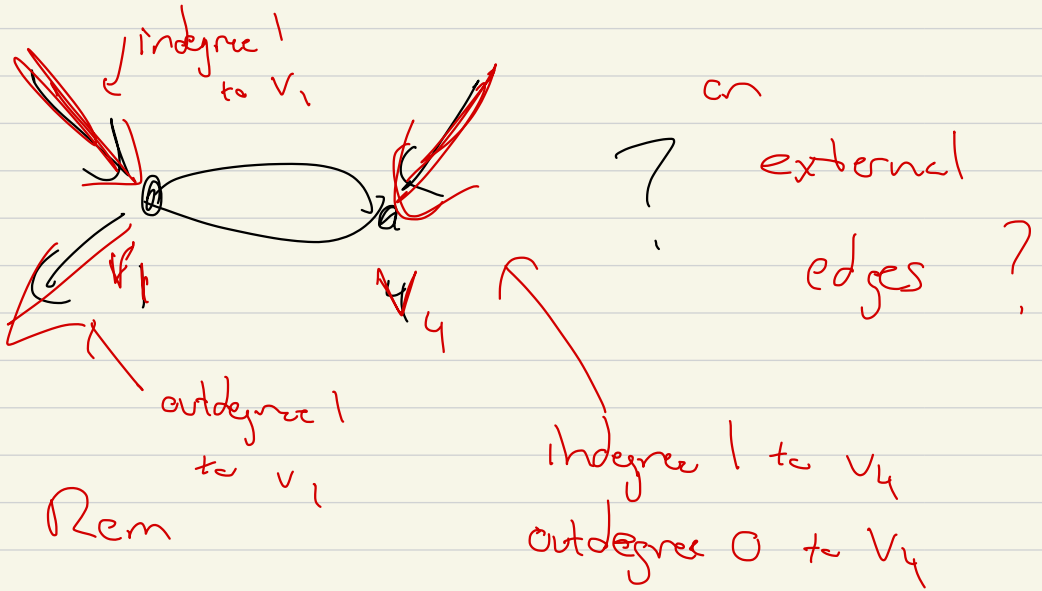 indegree 1
to v₁
on
external
edges ?
?
v₁
v₄
outdegree 1
to v₁
indegree 1 to v₄
outdegree 0 to v₄
Rem